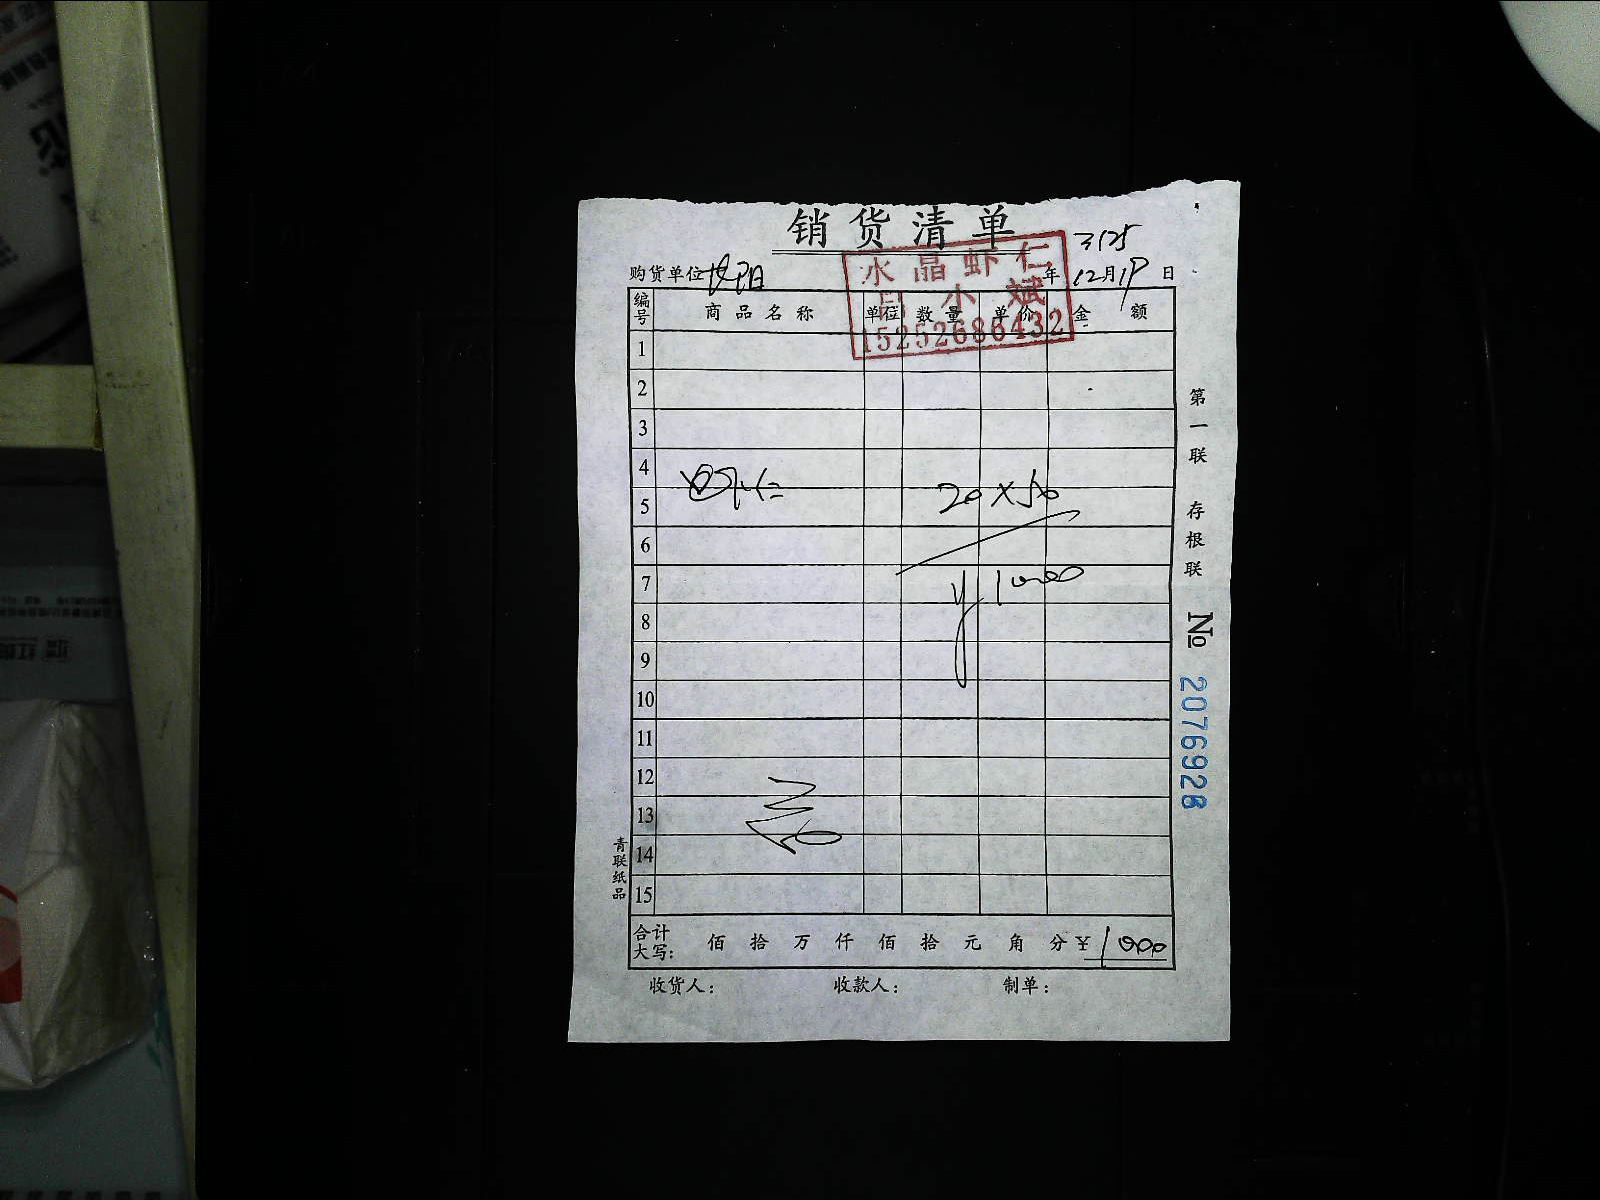 销货清单
3125
水晶虾仁
小斌
15252686432
购货单位 年 12月19日
编号 商品名称 单位 数量 单价 金额
1
2
3
4
20×50
5
6
7
¥1000
8
9
10
11
12
13
14
15
合计大写: 佰 拾 万 仟 佰 拾 元 角 分 ¥1000
收货人: 收款人: 制单:
第一联 存根联
№ 2076926
青联纸品